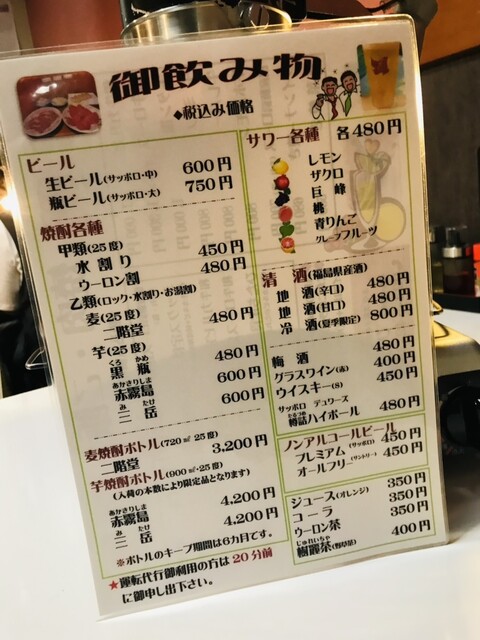 御飲み物
◆税込み価格
ビール
生ビール(サッポロ・中) 600円
瓶ビール(サッポロ・大) 750円
焼酎各種
甲類(25度)
水割り 450円
ウーロン割 480円
乙類(ロック・水割り・お湯割)
麦(25度)
二階堂 480円
芋(25度)
くろ かめ
黒瓶 480円
あかきりしま
赤霧島 600円
に たけ
二岳 600円
麦焼酎ボトル(720㎖ 25度)
二階堂 3,200円
芋焼酎ボトル(900㎖・25度)
(入荷の本数により限定品となります)
あかきりしま
赤霧島 4,200円
に たけ
二岳 4,200円
※ボトルのキープ期間は6カ月です。
★運転代行御利用の方は20分前
に御申し出下さい。
サワー各種 各480円
レモン
ザクロ
巨峰
桃
青りんご
グレープフルーツ
清酒(福島県産酒)
地酒(辛口) 480円
地酒(甘口) 480円
冷酒(夏季限定) 800円
梅酒 480円
グラスワイン(赤) 400円
ウイスキー(S) 450円
サッポロ デュワーズ
たるづめ
樽詰ハイボール 480円
ノンアルコールビール
プレミアム(サッポロ) 450円
オールフリー(サントリー) 450円
ジュース(オレンジ) 350円
コーラ 350円
ウーロン茶 350円
じゅれいちゃ
樹麗茶(野草茶) 400円